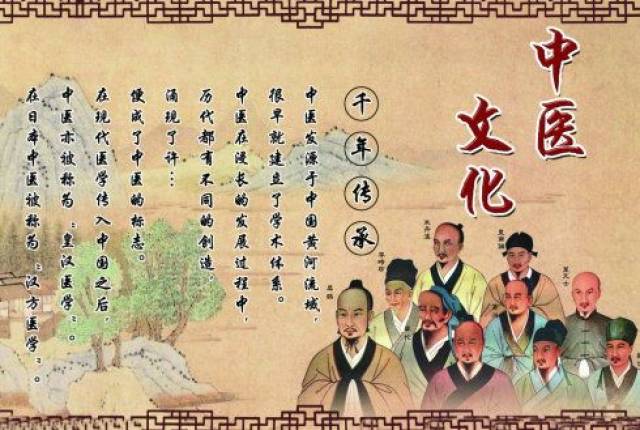 中医
文化
千年传承
中医发源于中国黄河流域，
很早就建立了学术体系。
中医在漫长的发展过程中，
历代都有不同的创造，
涌现了许…
便成了中医的标志。
在现代医学传入中国之后，
中医亦被称为：皇汉医学"。
在日本中医被称为：汉方医学"。
朱丹溪
皇甫谧
李时珍
扁鹊